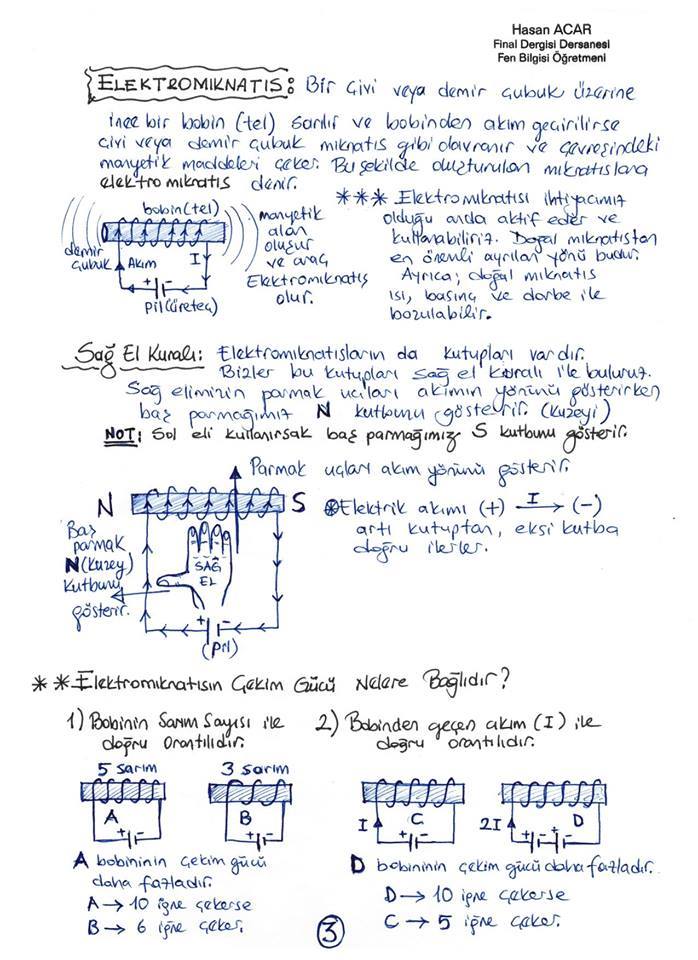 Hasan ACAR
Final Dergisi Dersanesi
Fen Bilgisi Öğretmeni
ELEKTROMIKNATIS: Bir çivi veya demir çubuk üzerine
ince bir bobin (tel) sarılır ve bobinden akım geçirilirse
çivi veya demir çubuk mıknatıs gibi davranır ve çevresindeki
manyetik maddeleri çeker. Bu şekilde oluşturulan mıknatıslara
elektromıknatıs denir.
bobin (tel)
demir çubuk
Akım
I
+ -
Pil (üreteç)
manyetik
alan
oluşur
ve araç
Elektromıknatıs
olur.
*** Elektromıknatısı ihtiyacımız
olduğu anda aktif eder ve
kullanabiliriz. Doğal mıknatıstan
en önemli ayrılan yönü budur.
Ayrıca; doğal mıknatıs
ısı, basınç ve darbe ile
bozulabilir.
Sağ El Kuralı: Elektromıknatısların da kutupları vardır.
Bizler bu kutupları sağ el kuralı ile buluruz.
Sağ elimizin parmak uçları akımın yönünü gösterirken
baş parmağımız N kutbunu gösterir. (Kuzeyi)
NOT: Sol eli kullanırsak baş parmağımız S kutbunu gösterir.
Parmak uçları akım yönünü gösterir.
N S
Baş
parmak
N (Kuzey)
Kutbunu
gösterir.
SAĞ
EL
+ -
(Pil)
Elektrik akımı (+) I → (-)
artı kutuptan, eksi kutba
doğru ilerler.
** Elektromıknatısın Çekim Gücü Nelere Bağlıdır?
1) Bobinin Sarım Sayısı ile
doğru orantılıdır.
5 sarım 3 sarım
A B
+ - + -
A bobininin çekim gücü
daha fazladır.
A → 10 iğne çekerse
B → 6 iğne çeker.
2) Bobinden geçen akım (I) ile
doğru orantılıdır.
I C 2I D
+ - + -
D bobininin çekim gücü daha fazladır.
D → 10 iğne çekerse
C → 5 iğne çeker.
3